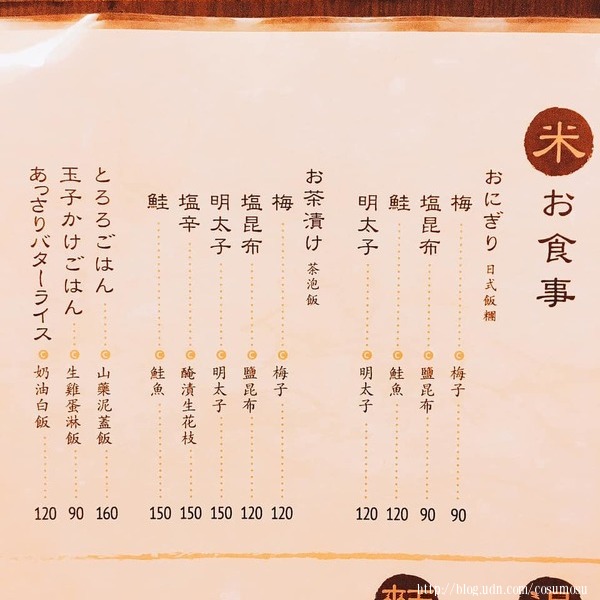 米
お食事
おにぎり 日式飯糰
梅 梅子 90
塩昆布 鹽昆布 90
鮭 鮭魚 120
明太子 明太子 120
お茶漬け 茶泡飯
梅 梅子 120
塩昆布 鹽昆布 120
明太子 明太子 150
塩辛 醃漬生花枝 150
鮭 鮭魚 150
とろろごはん 山藥泥蓋飯 160
玉子かけごはん 生雞蛋淋飯 90
あっさりバターライス 奶油白飯 120
http://blog.udn.com/cosumosu